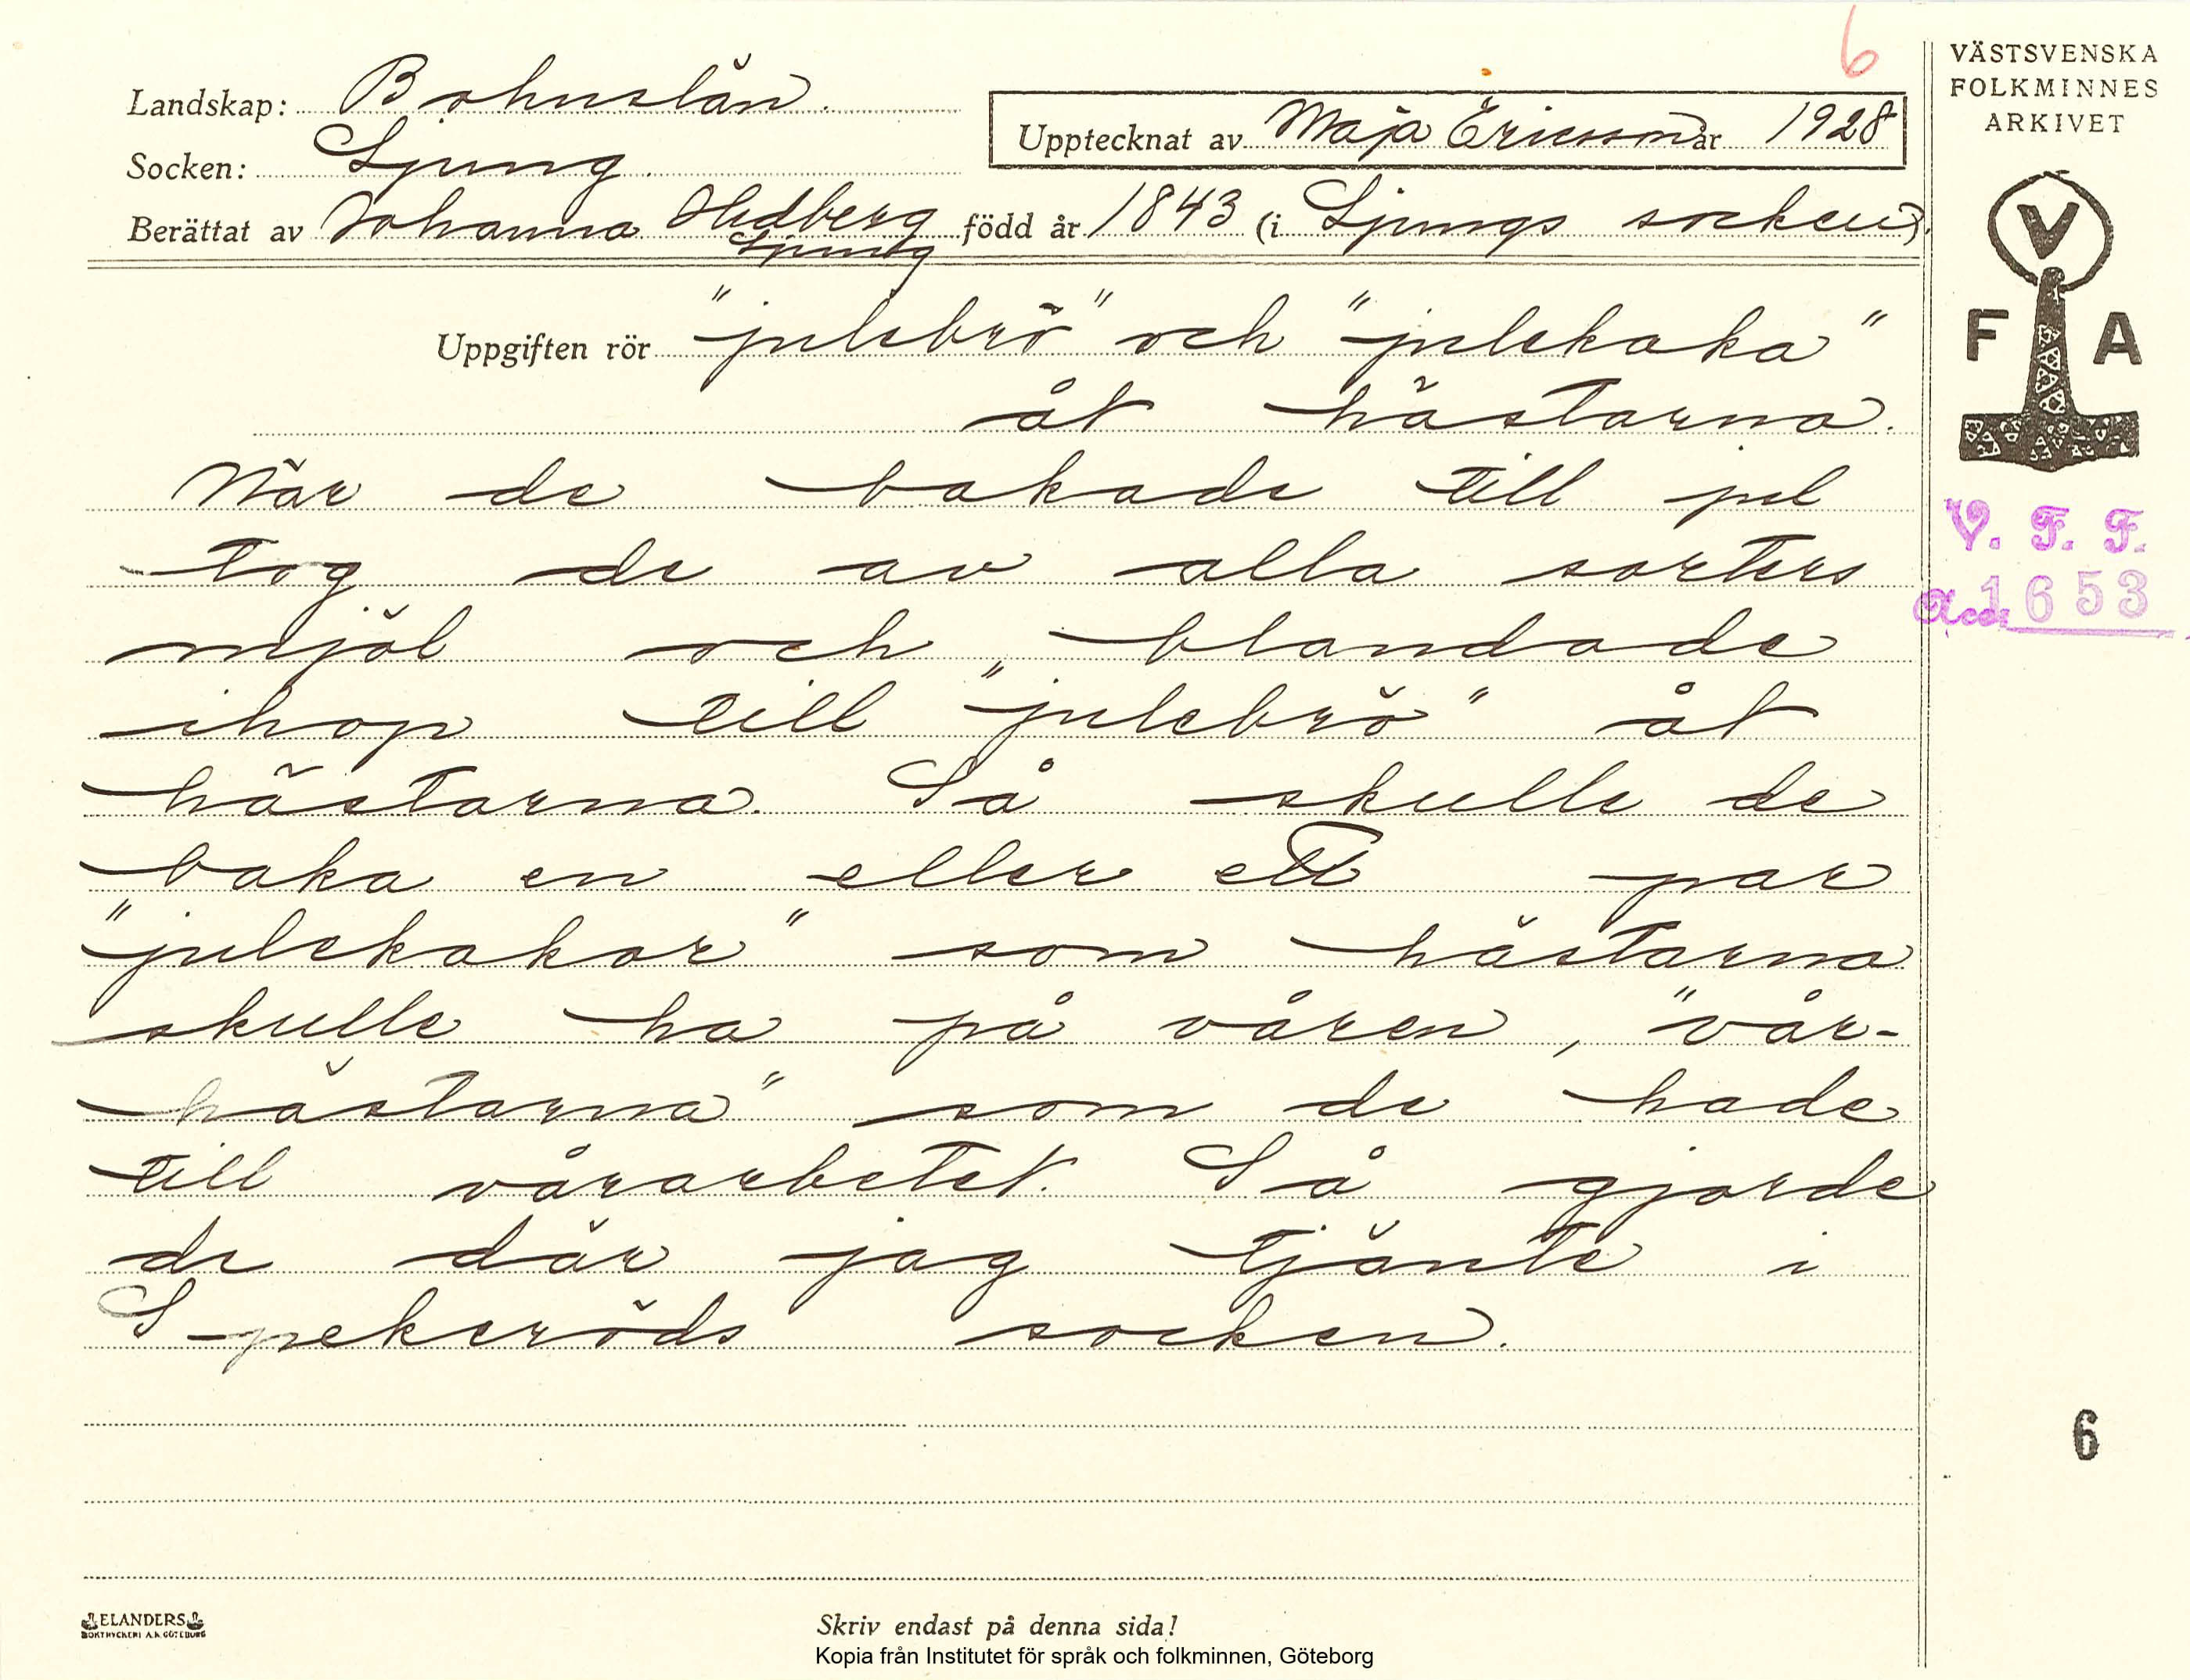 6
VÄSTSVENSKA
FOLKMINNES
ARKIVET
Landskap: Bohuslän.
Upptecknat av Maja Ericsson år 1928
Socken: Ljung
Berättat av Johanna Hedberg född år 1843 (i Ljungs socken).
Ljung
V
F A
Uppgiften rör "julebrö" och "julekaka"
åt hästarna.
När de bakade till jul
tog de av alla sorters
mjöl och blandade
ihop till "julebrö" åt
hästarna. Så skulle de
baka en eller ett par
"julekakor" som hästarna
skulle ha på våren, "vår-
hästarna" som de hade
till vårarbetet. Så gjorde
de där jag tjänte i
Spekeröds socken.
V. F. F.
Acc. 1653
6
ELANDERS
BOKTRYCKERI A.B. GÖTEBORG
Skriv endast på denna sida!
Kopia från Institutet för språk och folkminnen, Göteborg